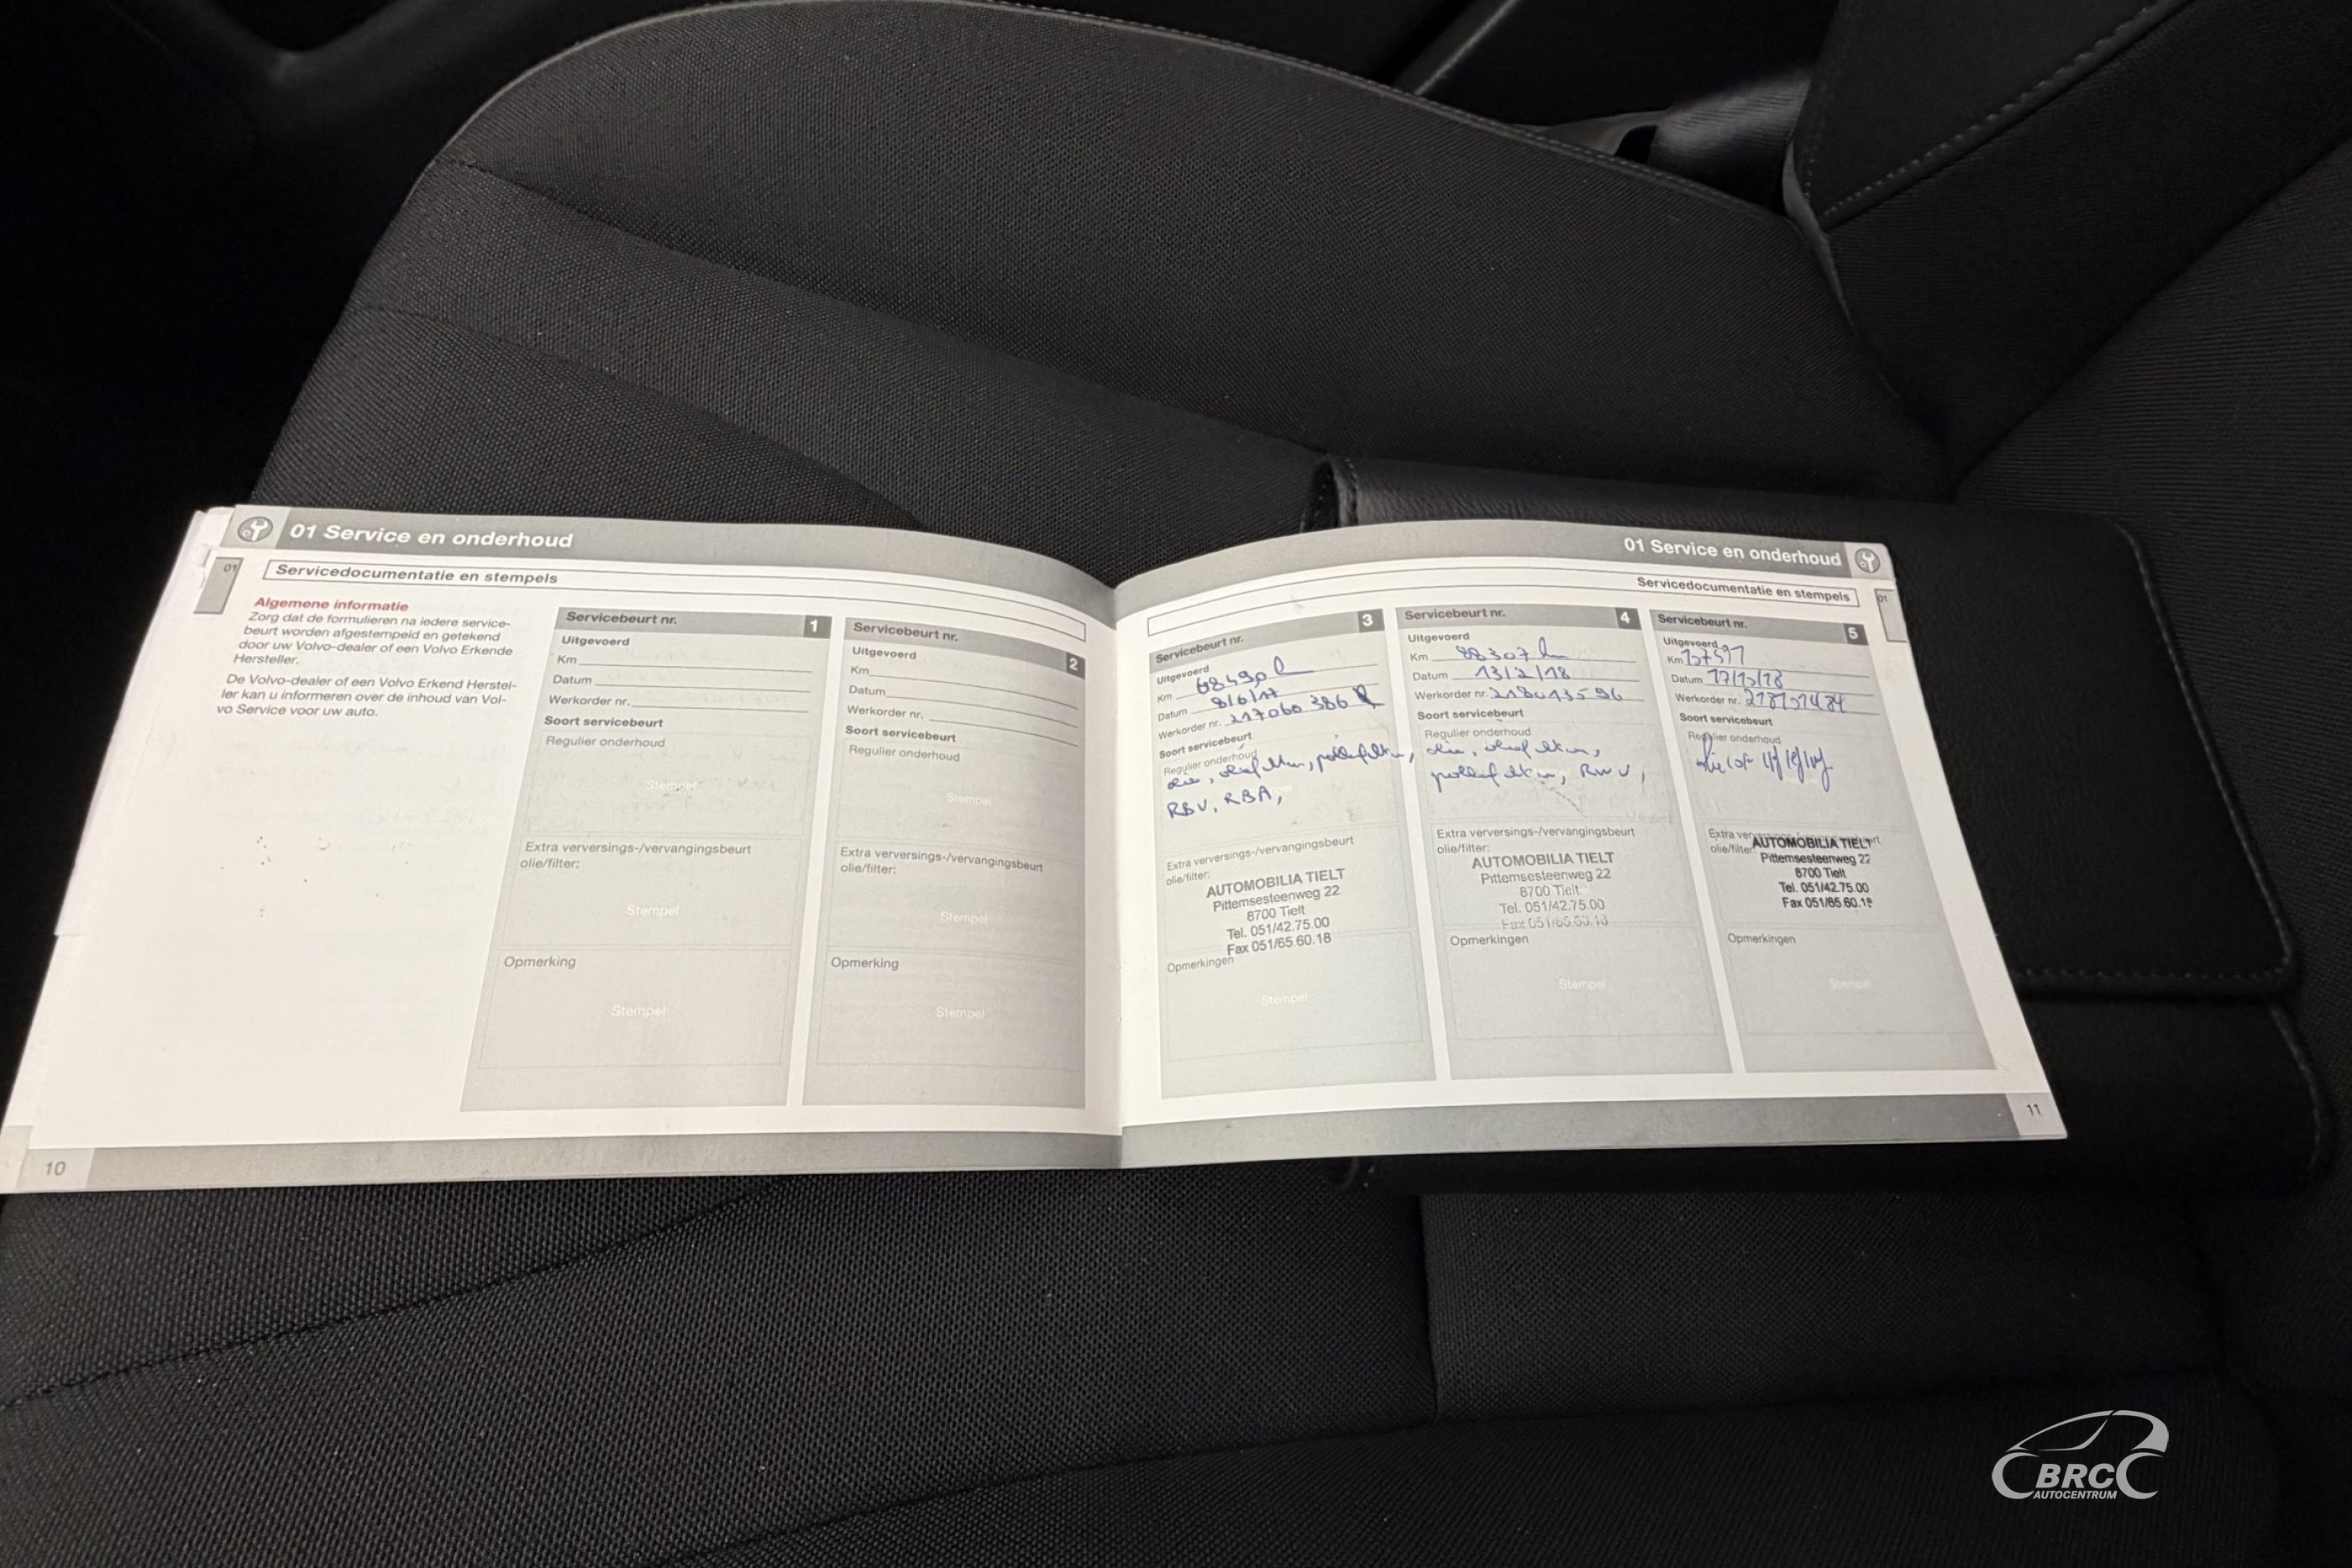 01 Service en onderhoud
01
Servicedocumentatie en stempels
Algemene informatie
Zorg dat de formulieren na iedere service-
beurt worden afgestempeld en getekend
door uw Volvo-dealer of een Volvo Erkende
Hersteller.
De Volvo-dealer of een Volvo Erkend Herstel-
ler kan u informeren over de inhoud van Vol-
vo Service voor uw auto.
Servicebeurt nr. 1
Uitgevoerd
Km
Datum
Werkorder nr.
Soort servicebeurt
Regulier onderhoud
Stempel
Extra verversings-/vervangingsbeurt
olie/filter:
Stempel
Opmerking
Stempel
Servicebeurt nr. 2
Uitgevoerd
Km
Datum
Werkorder nr.
Soort servicebeurt
Regulier onderhoud
Stempel
Extra verversings-/vervangingsbeurt
olie/filter:
Stempel
Opmerking
Stempel
10
01 Service en onderhoud
Servicedocumentatie en stempels
01
Servicebeurt nr. 3
Uitgevoerd
Km 68490
Datum 8/6/17
Werkorder nr. 217060386
Soort servicebeurt
Regulier onderhoud
RBV, RBA,
Extra verversings-/vervangingsbeurt
olie/filter:
AUTOMOBILIA TIELT
Pittemsesteenweg 22
8700 Tielt
Tel. 051/42.75.00
Fax 051/65.60.18
Opmerkingen
Stempel
Servicebeurt nr. 4
Uitgevoerd
Km 88307
Datum 13/2/18
Werkorder nr. 218013596
Soort servicebeurt
Regulier onderhoud
RWV,
Extra verversings-/vervangingsbeurt
olie/filter:
AUTOMOBILIA TIELT
Pittemsesteenweg 22
8700 Tielt
Tel. 051/42.75.00
Fax 051/65.60.18
Opmerkingen
Stempel
Servicebeurt nr. 5
Uitgevoerd
Km
Datum
Werkorder nr.
Soort servicebeurt
Regulier onderhoud
Extra
olie/filter:
AUTOMOBILIA TIELT
Pittemsesteenweg 22
8700 Tielt
Tel. 051/42.75.00
Fax 051/65.60.18
Opmerkingen
Stempel
11
BRC
AUTOCENTRUM